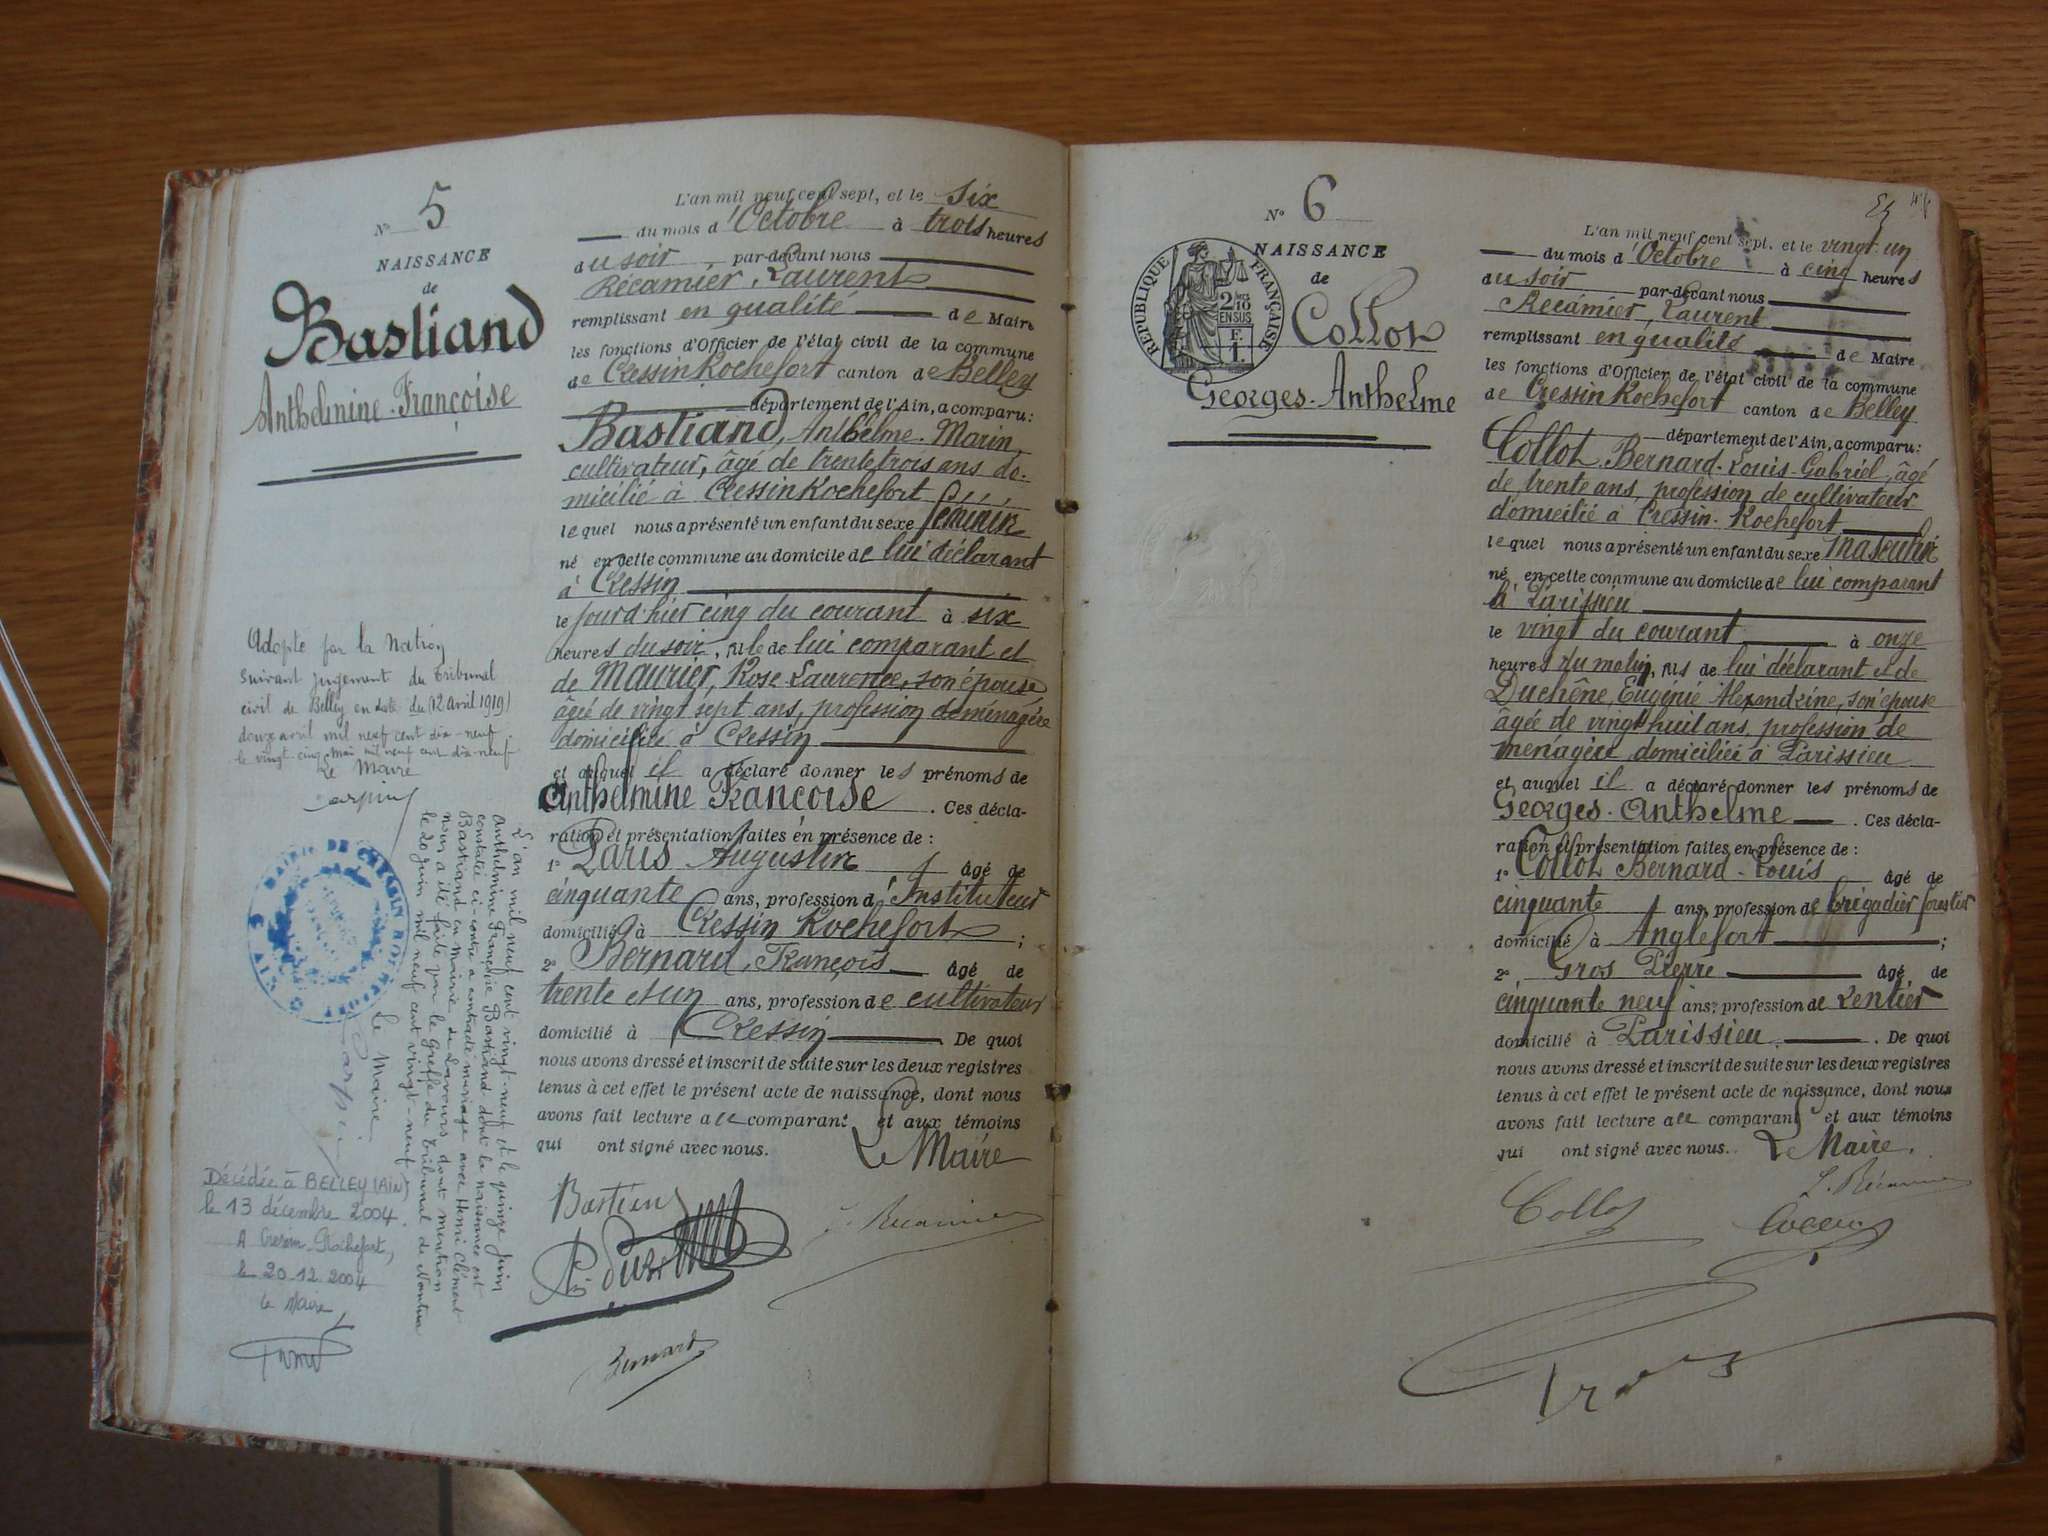 N° 5
NAISSANCE
de
Bastiand
Anthelmine-Françoise
Adopté par la Nation
suivant jugement du Tribunal
civil de Belley en date du (12 avril 1919)
douze avril mil neuf cent dix-neuf.
le vingt-cinq mai mil neuf cent dix-neuf
Le Maire
L'an mil neuf cent vingt-neuf et le quinze juin
Anthelmine Françoise Bastiand dont la naissance est
constatée ci-contre a contracté mariage avec Henri Clément
Bastiand en Mairie de Lavours dont mention
nous a été faite par le Greffe du Tribunal de Nantua
le 20 juin mil neuf cent vingt-neuf
Le Maire
MAIRIE DE CRESSIN
Décédée à BELLEY (AIN)
le 13 décembre 2004.
A Cressin-Rochefort,
le 20.12.2004
le Maire
L'an mil neuf cent sept, et le Six
du mois d'Octobre à trois heures
du soir, par-devant nous
Récamier, Laurent
remplissant en qualité de Maire
les fonctions d'Officier de l'état civil de la commune
de Cressin Rochefort canton de Belley
département de l'Ain, a comparu:
Bastiand, Anthelme-Marin,
cultivateur, âgé de trente trois ans do-
micilié à Cressin Rochefort
lequel nous a présenté un enfant du sexe féminin
né en cette commune au domicile de lui déclarant
à Cressin
le jourd'hier cinq du courant à six
heures du soir, fille de lui comparant et
de Maurier, Rose Laurence, son épouse
âgée de vingt sept ans, profession de ménagère
domiciliée à Cressin
et auquel il a déclaré donner les prénoms de
Anthelmine Françoise. Ces décla-
ration et présentation faites en présence de :
1° Paris Augustin âgé de
cinquante ans, profession d'Instituteur
domicilié à Cressin Rochefort ;
2° Bernard, François âgé de
trente et un ans, profession de cultivateur
domicilié à Cressin De quoi
nous avons dressé et inscrit de suite sur les deux registres
tenus à cet effet le présent acte de naissance, dont nous
avons fait lecture au comparant et aux témoins
qui ont signé avec nous.
Le Maire
Bastian
L. Récamier
Bernard
N° 6
NAISSANCE
de
Collot
Georges-Anthelme
RÉPUBLIQUE FRANÇAISE
2/10
EN SUS
F.
1.
L'an mil neuf cent sept, et le vingt-un
du mois d'Octobre à cinq heures
du soir par-devant nous
Récamier, Laurent
remplissant en qualité de Maire
les fonctions d'Officier de l'état civil de la commune
de Cressin Rochefort canton de Belley
département de l'Ain, a comparu:
Collot Bernard-Louis-Gabriel, âgé
de trente ans, profession de cultivateur
domicilié à Cressin-Rochefort
lequel nous a présenté un enfant du sexe masculin
né, en cette commune au domicile de lui comparant
à Parissieu
le vingt du courant à onze
heures du matin, fils de lui déclarant et de
Duchêne, Eugénie Alexandrine, son épouse
âgée de vingt huit ans, profession de
ménagère, domiciliée à Parissieu
et auquel il a déclaré donner les prénoms de
Georges-Anthelme. Ces décla-
ration et présentation faites en présence de :
1° Collot Bernard-Louis âgé de
cinquante ans, profession de brigadier forestier
domicilié à Anglefort ;
2° Gros Pierre âgé de
cinquante neuf ans, profession de rentier
domicilié à Parissieu. De quoi
nous avons dressé et inscrit de suite sur les deux registres
tenus à cet effet le présent acte de naissance, dont nous
avons fait lecture au comparant et aux témoins
qui ont signé avec nous.
Le Maire,
L. Récamier
Collot
Gros